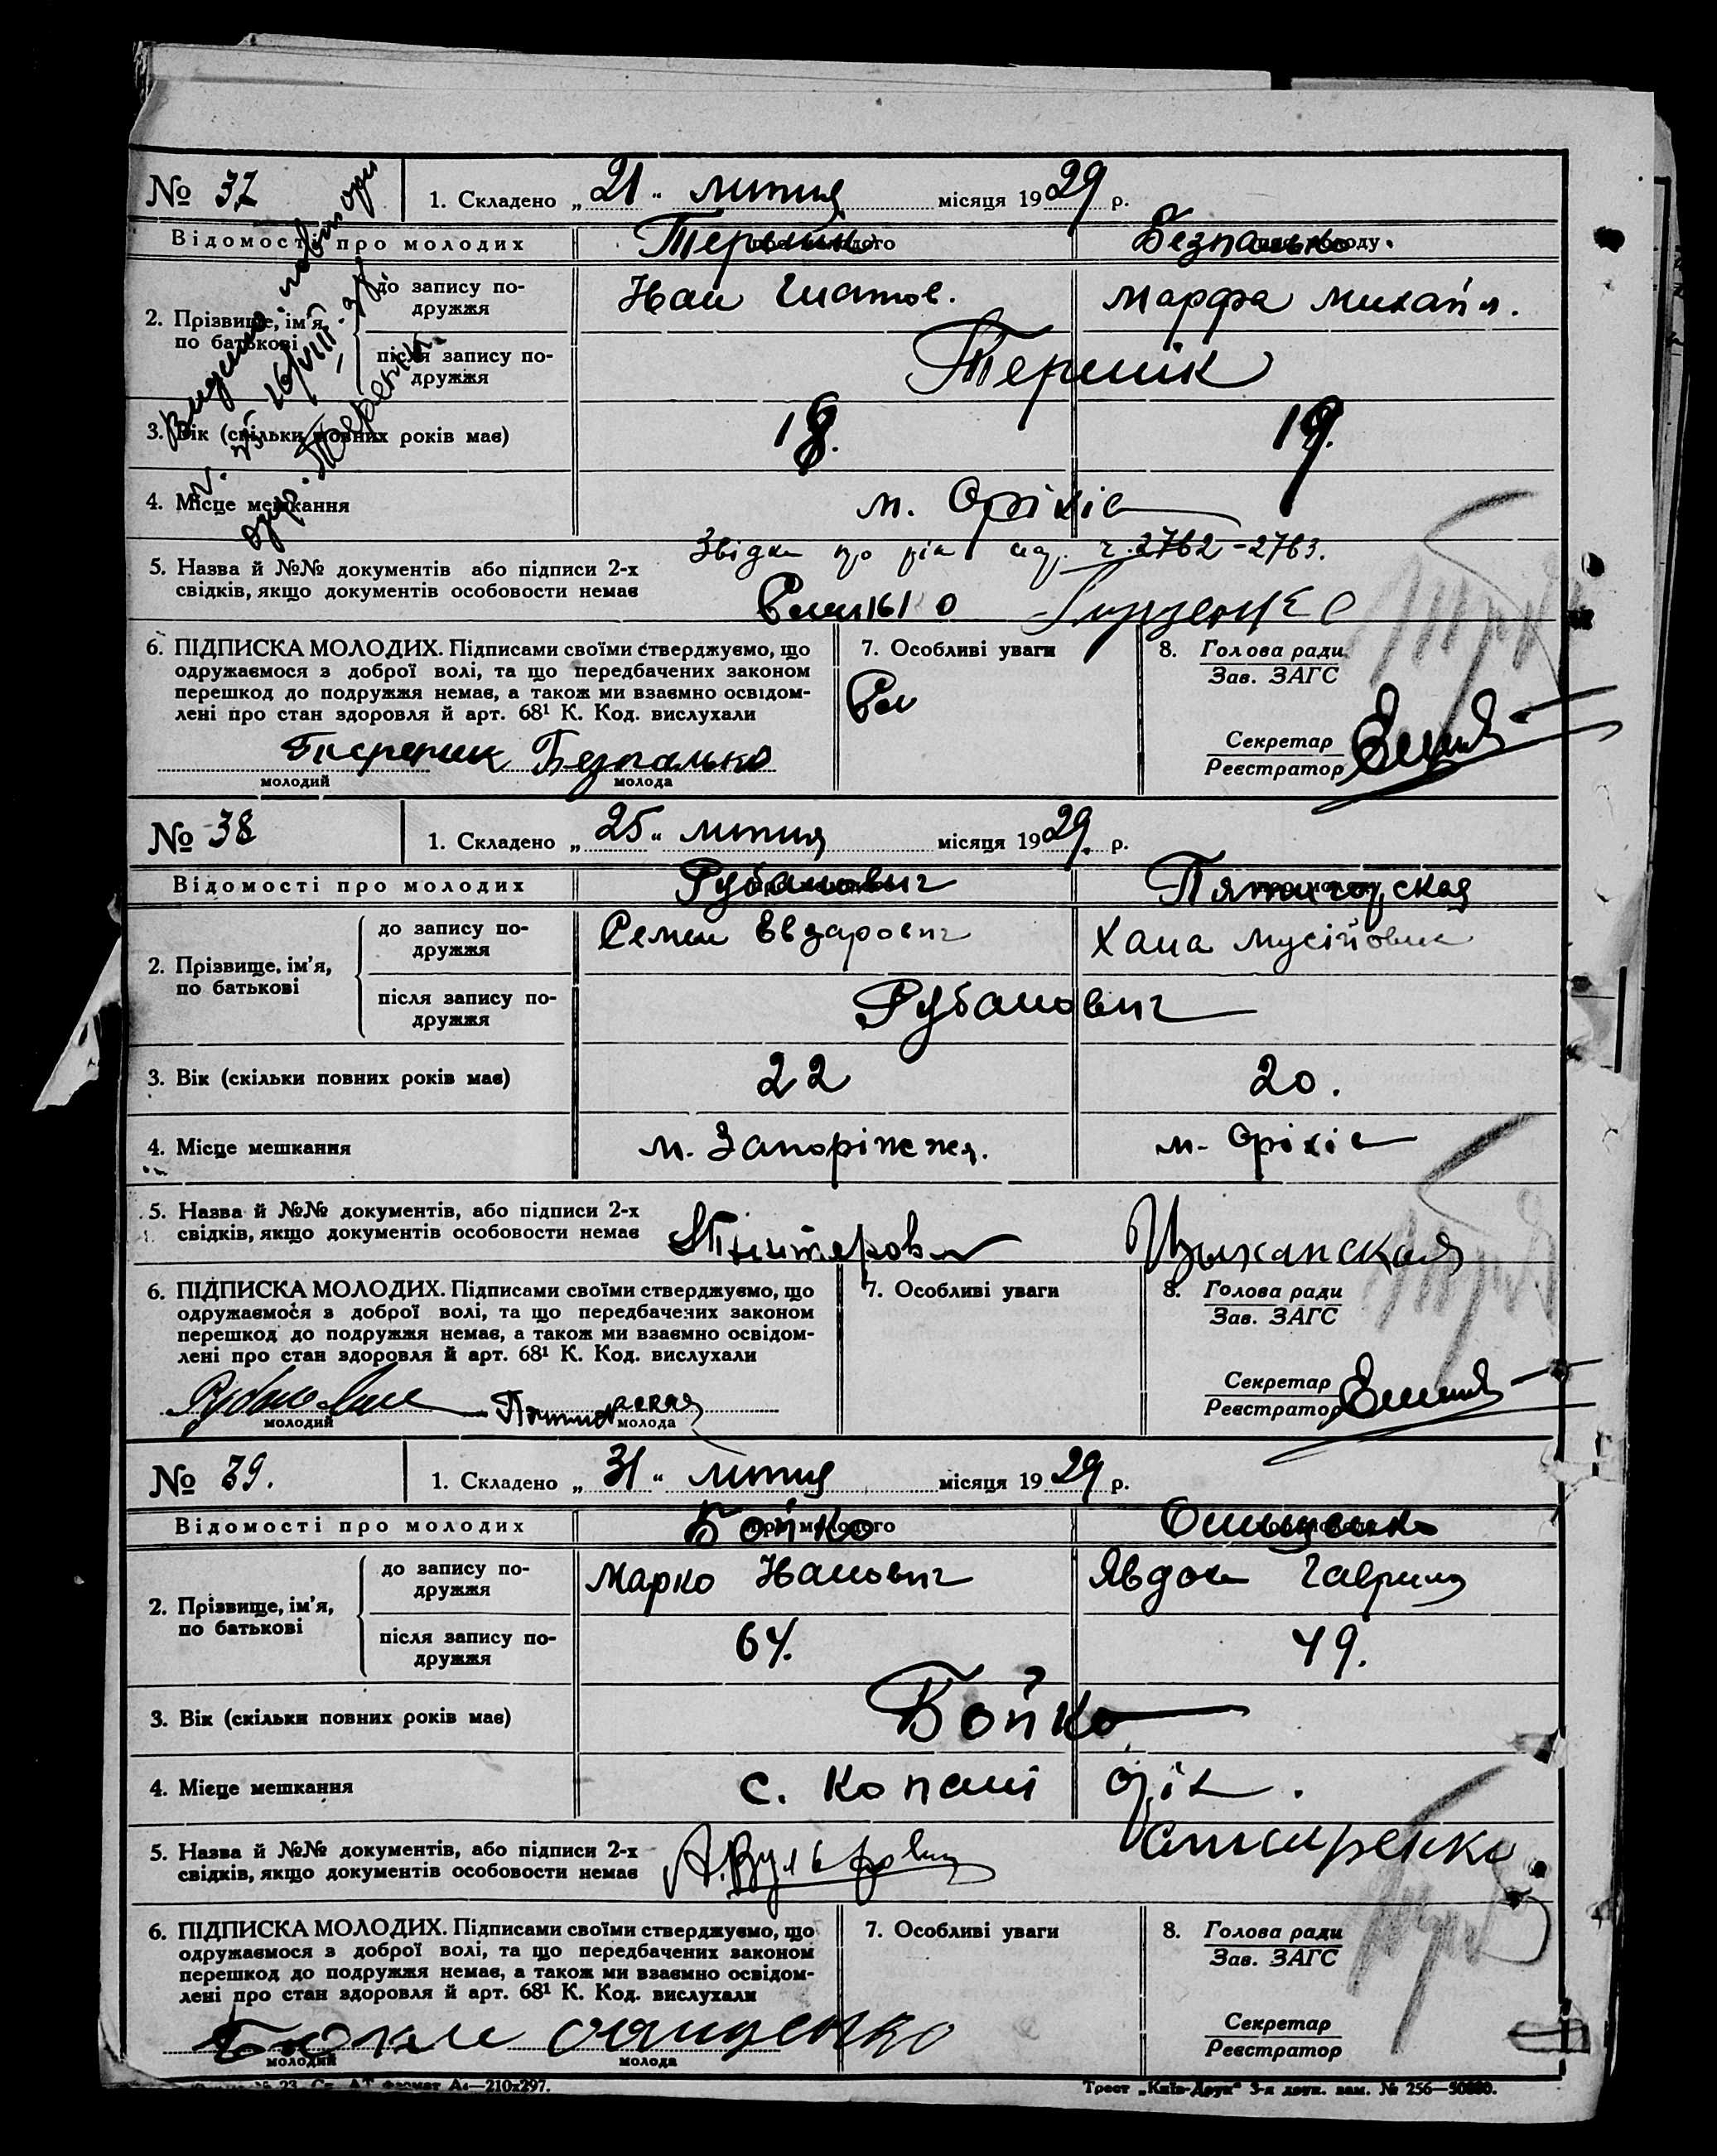 № 37 1. Складено „21“ липця місяця 1929 р.
Відомості про молодих Безпалько
2. Прізвище, ім’я, по батькові
до запису по-
дружжя Марфа Михайл.
після запису по-
дружжя Терник
3. Вік (скільки повних років має) 18. 19.
4. Місце мешкання м. Оріхів
5. Назва й №№ документів або підписи 2-х
свідків, якщо документів особовости немає
Звідки про рік ч. 2762-2763.
6. ПІДПИСКА МОЛОДИХ. Підписами своїми стверджуємо, що
одружаємося з доброї волі, та що передбачених законом
перешкод до подружжя немає, а також ми взаємно освідом-
лені про стан здоровля й арт. 68¹ К. Код. вислухали
Безпалько
молодий молода
7. Особливі уваги
8. Голова ради
Зав. ЗАГС
Секретар
Реєстратор
№ 38 1. Складено „25“ липця місяця 1929 р.
Відомості про молодих Рубанович Пятигорская
2. Прізвище, ім’я,
по батькові
до запису по-
дружжя Семен Евзарович Хана Мусійовна
після запису по-
дружжя Рубанович
3. Вік (скільки повних років має) 22 20.
4. Місце мешкання м. Запоріжжя. м. Оріхів
5. Назва й №№ документів, або підписи 2-х
свідків, якщо документів особовости немає
6. ПІДПИСКА МОЛОДИХ. Підписами своїми стверджуємо, що
одружаємося з доброї волі, та що передбачених законом
перешкод до подружжя немає, а також ми взаємно освідом-
лені про стан здоровля й арт. 68¹ К. Код. вислухали
Рубанович
молодий молода
7. Особливі уваги
8. Голова ради
Зав. ЗАГС
Секретар
Реєстратор
№ 39. 1. Складено „31“ липця місяця 1929 р.
Відомості про молодих Бойко
2. Прізвище, ім’я,
по батькові
до запису по-
дружжя Марко Іванович Явдоха Гаврил
після запису по-
дружжя 64. 49.
3. Вік (скільки повних років має) Бойко
4. Місце мешкання с. Копані Оріх.
5. Назва й №№ документів, або підписи 2-х
свідків, якщо документів особовости немає
6. ПІДПИСКА МОЛОДИХ. Підписами своїми стверджуємо, що
одружаємося з доброї волі, та що передбачених законом
перешкод до подружжя немає, а також ми взаємно освідом-
лені про стан здоровля й арт. 68¹ К. Код. вислухали
молодий молода
7. Особливі уваги
8. Голова ради
Зав. ЗАГС
Секретар
Реєстратор
№ 23. формат А₄—210х297. Трест „Київ-Друк“ 3-я друк. зам. № 256—50000.